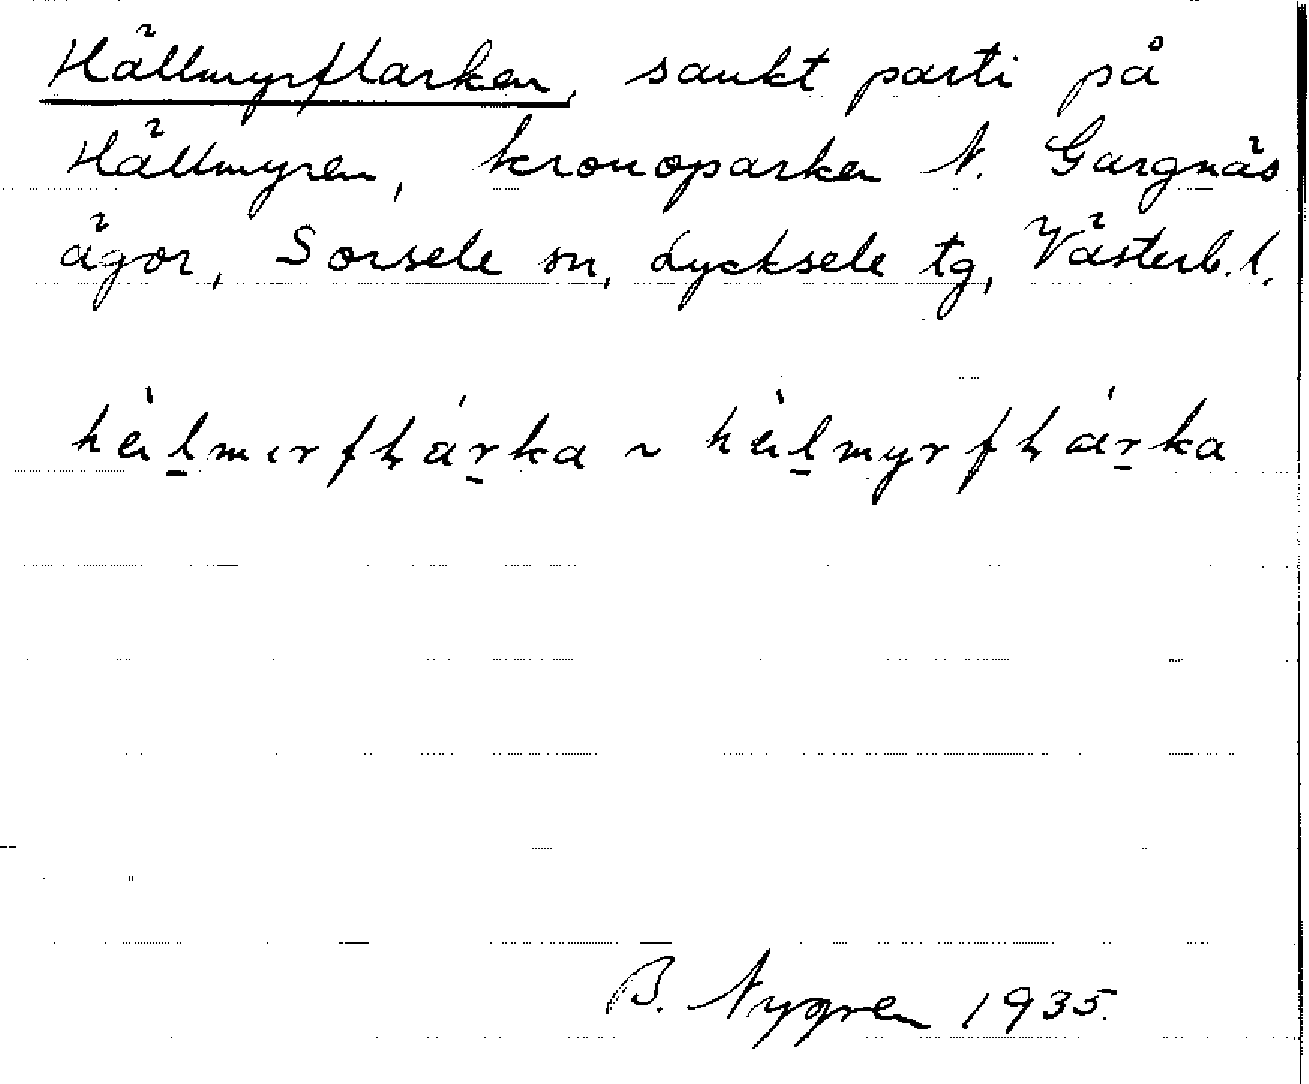 Hällmyrflarken, sankt parti på
Hällmyren, kronoparken N. Gargnäs
ägor, Sorsele sn, Lycksele tg, Västerb. l.
B. Nygren 1935.